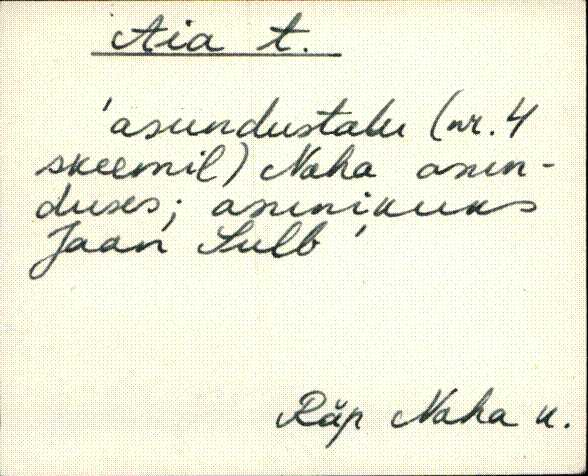 Aia t.
'asundustalu (nr. 4
skeemil) Naha asun-
duses; asunikuks
Jaan Sulb'
Räp Naha k.